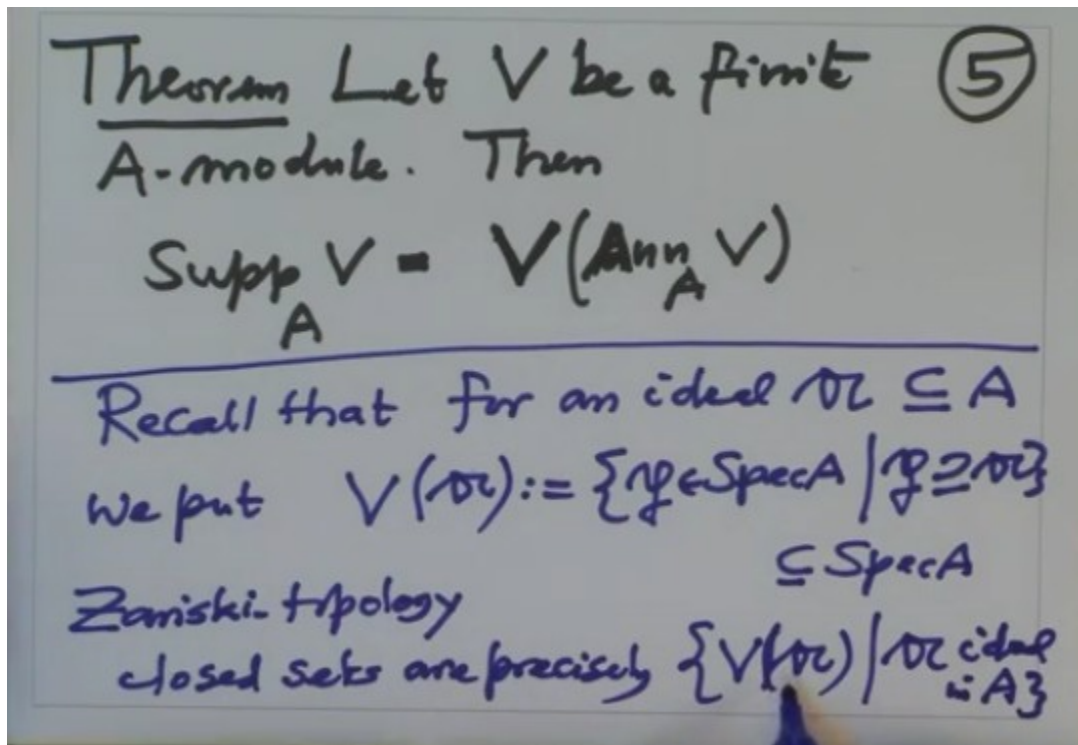 Theorem Let V be a finite ⑤
A-module. Then
Supp_A V = V(Ann_A V)
Recall that for an ideal 𝔞 ⊆ A
we put V(𝔞) := {𝔭 ∈ Spec A | 𝔭 ⊇ 𝔞}
⊆ Spec A
Zariski-topology
closed sets are precisely {V(𝔞) | 𝔞 ideal in A}